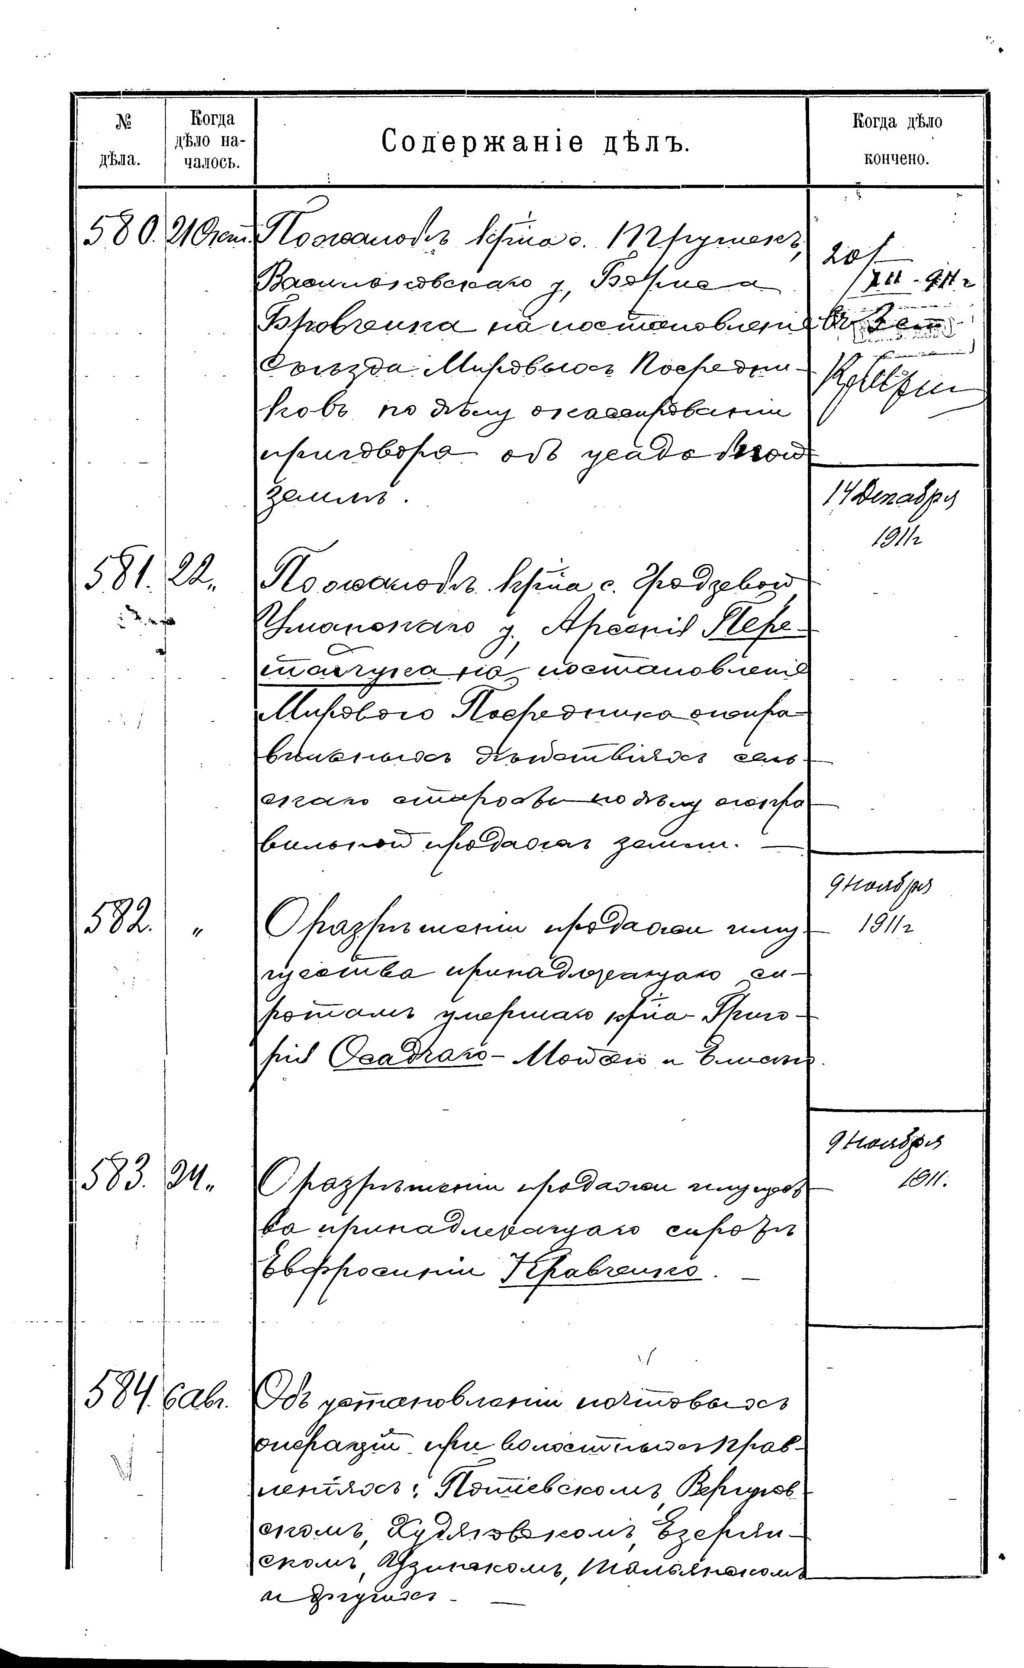 № дѣла.
Когда дѣло на-
чалось.
Содержаніе дѣлъ.
Когда дѣло
кончено.
580. 21 Окт. По жалобѣ кр-на с.
Васильковскаго у, Бориса
Бровченка на постановленіе
Съѣзда Мировыхъ Посредни-
ковъ по дѣлу о кассированіи
приговора объ усадебной
землѣ.
20/XII - 911 г
14 Декабря
1911 г
581. 22 „ По жалобѣ кр-на с. Гродзевой
Уманскаго у, Арсенія Пере-
тятчука на постановленіе
Мирового Посредника о непра-
вильныхъ дѣйствіяхъ сель-
скаго старосты по дѣлу о непра
вильной продажѣ земли. —
9 Ноября
1911 г
582. „ О разрѣшеніи продажи иму
щества принадлежащаго си-
ротамъ умершаго кр-на Григо-
рія Осадчаго - Моисею и
9 Ноября
1911.
583. 24 „ О разрѣшеніи продажи имущест
ва принадлежащаго сиротѣ
Евфросиніи Кравченко. —
584. 6 Авг. Объ установленіи почтовыхъ
операцій при волостныхъ Прав-
леніяхъ: Потіевскомъ,
скомъ, Худяковскомъ, Езерян-
скомъ, Узинскомъ, Тальянскомъ
и другихъ. —